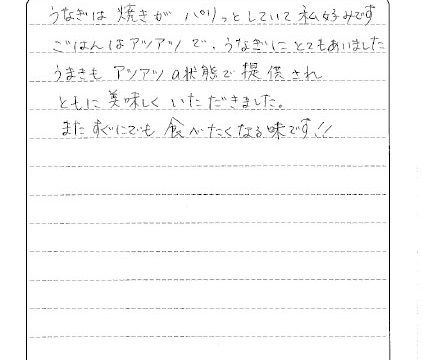 うなぎは焼きがパリっとしていて私好みです
ごはんはアツアツで、うなぎにとてもあいました
うまきもアツアツの状態で提供され
ともに美味しくいただきました。
またすぐにでも食べたくなる味です!!